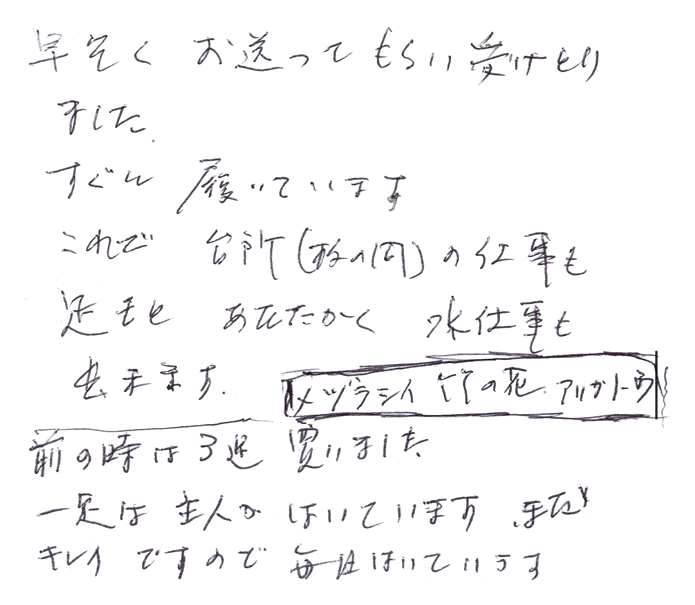 早そく お送ってもらい受けとり
ました。
すぐに 履いています
これで 台所(板の間)の仕事も
足もと あたたかく 水仕事も
出来ます。
メヅラシイ 竹の花、アリガトウ
前の時は3足 買いました
一足は主人が はいています まだ
キレイですので 毎日はいています